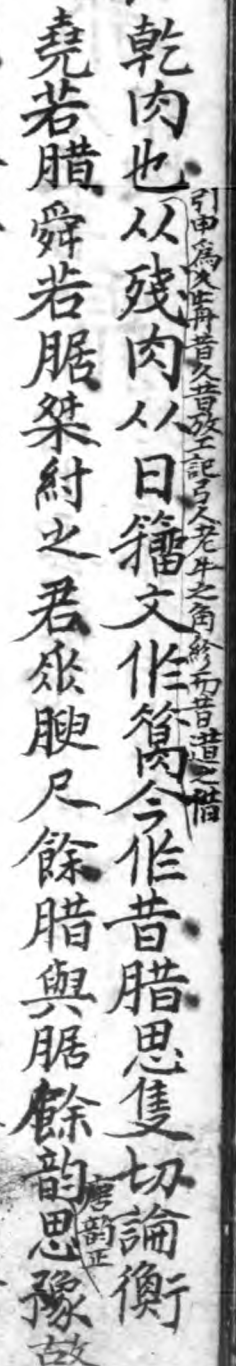 乾肉也从殘肉从日籒文作𦠡今作昔腊思隻切論衡
引申爲久昔久昔攷工記弓人老牛之角紾而昔道之借
堯若腊舜若腒桀紂之君垂腴尺餘腊與腒餘韵思豫故
唐韵正